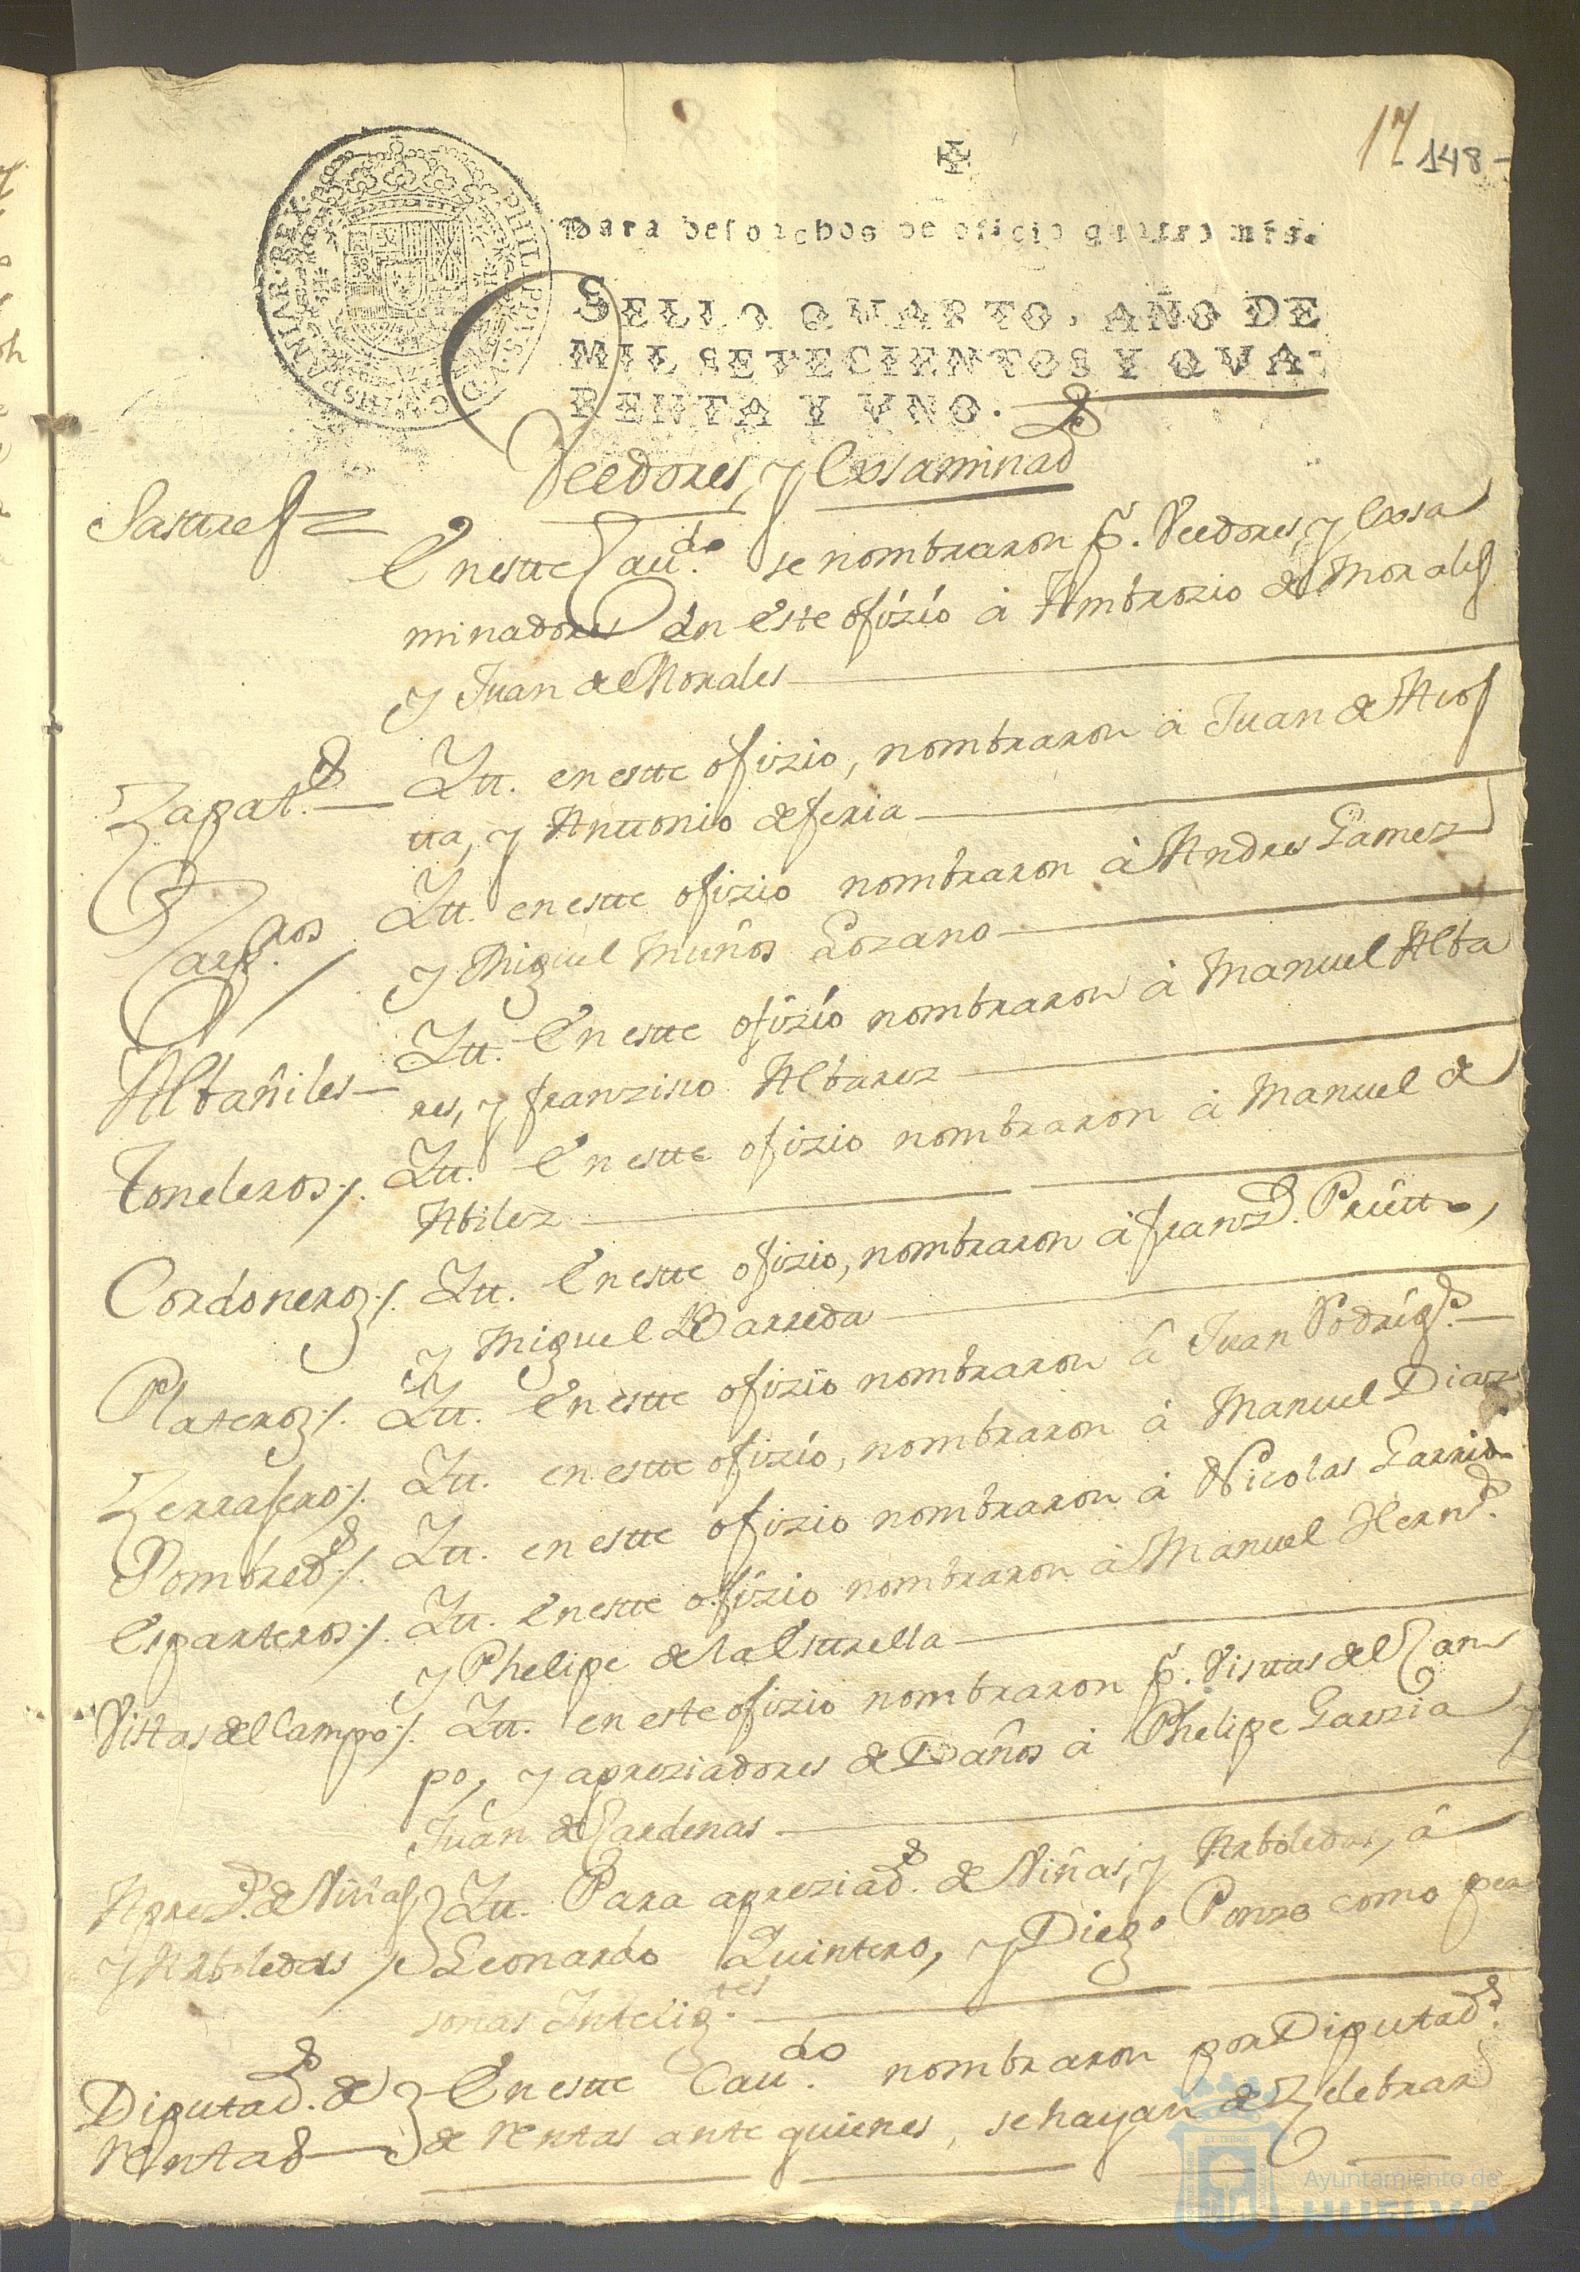 17 148
Para despachos de oficio quatro mrs.
PHILIPPUS V D G HISPANIAR REX
SELLO QVARTO, AÑO DE
MIL SETECIENTOS Y QVA
RENTA Y VNO.
Veedores, y Exsaminad.s
Sasttres
En estte Cau.do se nombraron p.r Veedores, y Exsa
minadores en este ofizio â Ambrozio de Morales
y Juan de Morales
Zapat.s Itt. en estte ofizio, nombraron â Juan de Acos
tta, y Anttonio de feria
Carp.ros Itt. en estte ofizio nombraron â Andres Gamez
y Miguel Muños Lozano
Albañiles Itt. En estte ofizio nombraron â Manuel Alba
res, y franzisco Albarez
Toneleros Itt. En estte ofizio nombraron â Manuel de
Abilez
Cordoneros Itt. En estte ofizio, nombraron â franz.co Prietto,
y Miguel Barreda
Plateros Itt. En estte ofizio nombraron â Juan Rodrig.s
Zerrageros Itt. en estte ofizio, nombraron â Manuel Diaz
Itt. en estte ofizio nombraron â Nicolas Garrido
Esparteros Itt. En estte ofizio nombraron â Manuel Hern.s
y Phelipe de la Esttrella
Vistas del Campo Itt. en este ofizio nombraron p.r Visttas del Cam
po, y apreziadores de Daños â Phelipe Garzia y
Juan de Cardenas
Aprez.s de Viñas Itt. Para apreziad.s de Viñas, y Arboledas, â
y Arboledas Leonardo Quintero, y Diego Ponze como per
sonas Intelig.tes
Diputad.s de En estte Cau.do nombraron por Diputad.s
Rentas de Rentas ante quienes, se hayan de Zelebrar
Ayuntamiento de
HUELVA